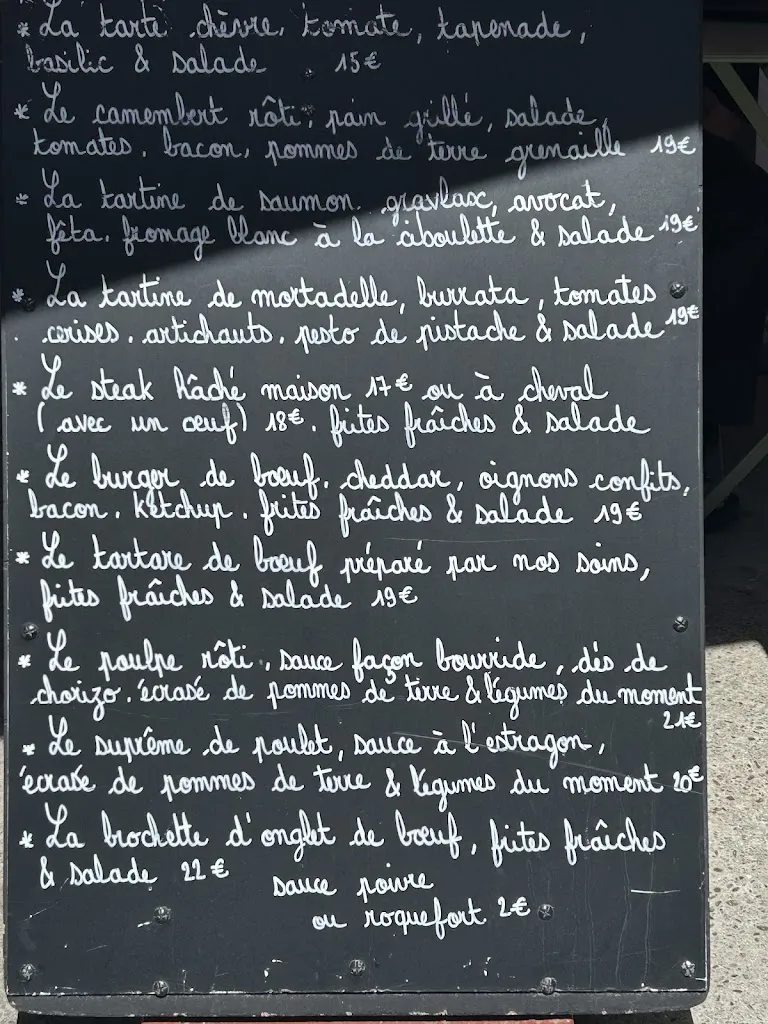 * La tarte chèvre, tomate, tapenade,
basilic & salade 15€
* Le camembert rôti, pain grillé, salade,
tomates, bacon, pommes de terre grenaille 19€
* La tartine de saumon gravlax, avocat,
fêta, fromage blanc à la ciboulette & salade 19€
* La tartine de mortadelle, burrata, tomates
cerises, artichauts, pesto de pistache & salade 19€
* Le steak hâché maison 17€ ou à cheval
(avec un œuf) 18€, frites fraîches & salade
* Le burger de bœuf, cheddar, oignons confits,
bacon, ketchup, frites fraîches & salade 19€
* Le tartare de bœuf préparé par nos soins,
frites fraîches & salade 19€
* Le poulpe rôti, sauce façon bourride, dés de
chorizo, écrasé de pommes de terre & légumes du moment
21€
* Le suprême de poulet, sauce à l'estragon,
écrasé de pommes de terre & légumes du moment 20€
* La brochette d'onglet de bœuf, frites fraîches
& salade 22€
sauce poivre
ou roquefort 2€